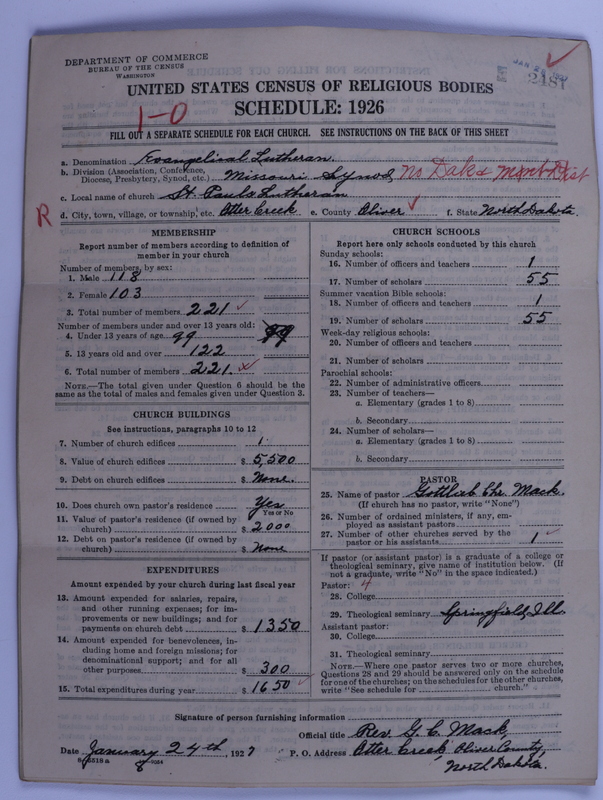 DEPARTMENT OF COMMERCE
BUREAU OF THE CENSUS
WASHINGTON
JAN
2481
UNITED STATES CENSUS OF RELIGIOUS BODIES
SCHEDULE: 1926
1-0
FILL OUT A SEPARATE SCHEDULE FOR EACH CHURCH. SEE INSTRUCTIONS ON THE BACK OF THIS SHEET
a. Denomination Evangelical Lutheran
b. Division (Association, Conference, Diocese, Presbytery, Synod, etc.) Missouri Synod, No Dak & Mont Dist
c. Local name of church St. Pauls Lutheran
R
d. City, town, village, or township, etc. Otter Creek e. County Oliver f. State North Dakota.
MEMBERSHIP
Report number of members according to definition of
member in your church
Number of members, by sex:
1. Male 118
2. Female 103
3. Total number of members 221
Number of members under and over 13 years old:
4. Under 13 years of age 99 99
5. 13 years old and over 122
6. Total number of members 221
NOTE.—The total given under Question 6 should be the
same as the total of males and females given under Question 3.
CHURCH BUILDINGS
See instructions, paragraphs 10 to 12
7. Number of church edifices 1
8. Value of church edifices $ 5,500
9. Debt on church edifices $ None.
10. Does church own pastor's residence Yes
Yes or No
11. Value of pastor's residence (if owned by
church) $ 2000
12. Debt on pastor's residence (if owned by
church) $ None
EXPENDITURES
Amount expended by your church during last fiscal year
13. Amount expended for salaries, repairs,
and other running expenses; for im-
provements or new buildings; and for
payments on church debt $ 1350
14. Amount expended for benevolences, in-
cluding home and foreign missions; for
denominational support; and for all
other purposes $ 300
15. Total expenditures during year $ 1650
CHURCH SCHOOLS
Report here only schools conducted by this church
Sunday schools:
16. Number of officers and teachers 1
17. Number of scholars 55
Summer vacation Bible schools:
18. Number of officers and teachers 1
19. Number of scholars 55
Week-day religious schools:
20. Number of officers and teachers
21. Number of scholars
Parochial schools:
22. Number of administrative officers
23. Number of teachers—
a. Elementary (grades 1 to 8)
b. Secondary
24. Number of scholars—
a. Elementary (grades 1 to 8)
b. Secondary
PASTOR
25. Name of pastor Gottlieb Chr. Mack.
(If church has no pastor, write "None")
26. Number of ordained ministers, if any, em-
ployed as assistant pastors
27. Number of other churches served by the
pastor or his assistants 1
If pastor (or assistant pastor) is a graduate of a college or
theological seminary, give name of institution below. (If
not a graduate, write "No" in the space indicated.)
Pastor: 4
28. College
29. Theological seminary Springfield, Ill.
Assistant pastor:
30. College
31. Theological seminary
NOTE.—Where one pastor serves two or more churches,
Questions 28 and 29 should be answered only on the schedule
for one of the churches; on the schedules for the other churches,
write "See schedule for church."
Signature of person furnishing information
Official title Rev. G. C. Mack,
Date January 24th, 1927 P. O. Address Otter Creek, Oliver County,
North Dakota.